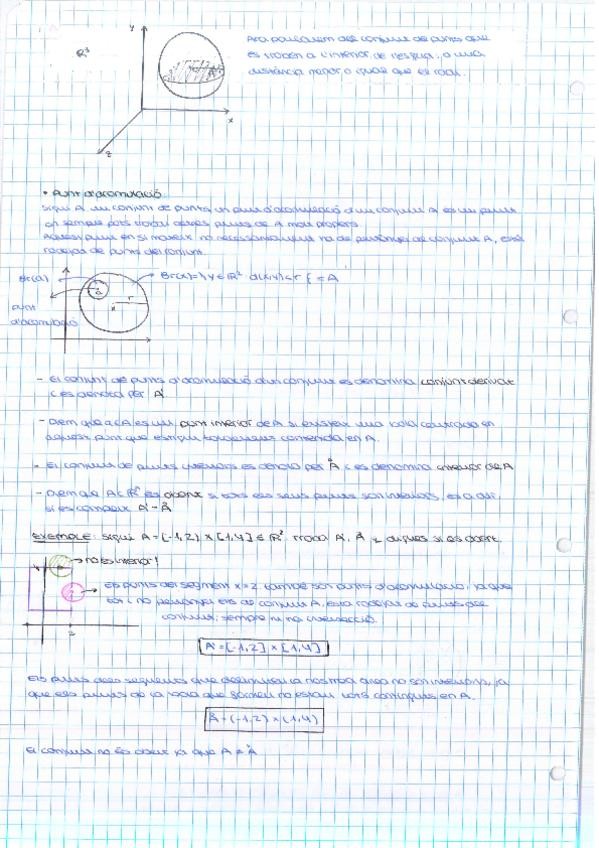 R³
y
x
z
Ara parlarem del conjunt de punts que
es troben a l'interior de l'esfera, o una
distància menor o igual que el radi.
• Punt d'acumulació:
Sigui A un conjunt de punts, un punt d'acumulació d'un conjunt A és un punt
on sempre pots trobar altres punts de A molt propers.
Aquest punt en si mateix no necessàriament ha de pertànyer al conjunt A, està
rodejat de punts del conjunt.
Br(x)={y ∈ R² d(x,y)<r} = A
r
x
punt
d'acumulació
- El conjunt de punts d'acumulació d'un conjunt es denomina conjunt derivat
i es denota per A'
- Diem que a∈A és un punt interior de A si existeix una bola centrada en
aquest punt que estigui totalment continguda en A.
- El conjunt de punts interiors es denota per Å i es denomina interior de A
- Diem que A⊂R² és obert si tots els seus punts són interiors, és a dir
si es compleix A = Å
Exemple: Sigui A = [-1,2) x [1,4] ∈ R². Troba A', Å y digues si és obert.
→ no és interior!
Els punts del segment x=2 també són punts d'acumulació, ja que
tot i no pertànyer ells al conjunt A, està rodejat de punts del
conjunt, sempre hi ha intersecció.
2
A' = [-1,2] x [1,4]
Els punts dels segments que delimiten la nostra àrea no són interiors, ja
que els punts de la bola que formen no estan tots continguts en A.
Å = (-1,2) x (1,4)
El conjunt no és obert ja que A ≠ Å